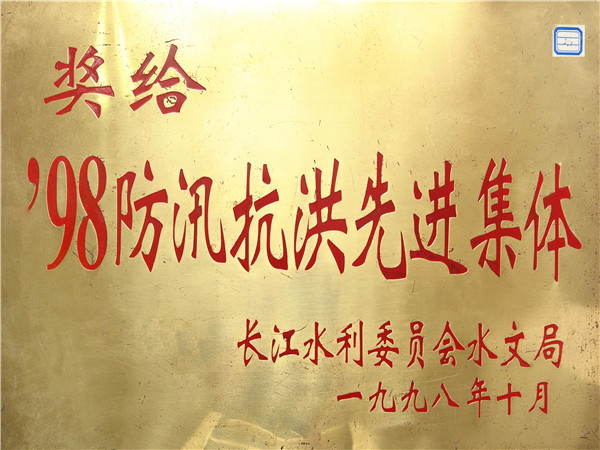 奖给
’98防汛抗洪先进集体
长江水利委员会水文局
一九九八年十月